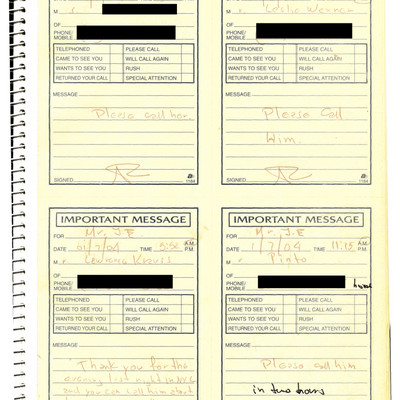 M
OF
PHONE/
MOBILE
TELEPHONED PLEASE CALL
CAME TO SEE YOU WILL CALL AGAIN
WANTS TO SEE YOU RUSH
RETURNED YOUR CALL SPECIAL ATTENTION
MESSAGE
Please call her.
SIGNED 1184
M Leslie
OF
PHONE/
MOBILE
TELEPHONED PLEASE CALL
CAME TO SEE YOU WILL CALL AGAIN
WANTS TO SEE YOU RUSH
RETURNED YOUR CALL SPECIAL ATTENTION
MESSAGE
Please Call
Him.
SIGNED 1184
IMPORTANT MESSAGE
FOR Mr. J.E.
DATE 01/7/04 TIME 5:50 A.M. P.M.
M
OF
PHONE/
MOBILE
TELEPHONED PLEASE CALL
CAME TO SEE YOU WILL CALL AGAIN
WANTS TO SEE YOU RUSH
RETURNED YOUR CALL SPECIAL ATTENTION
MESSAGE
Thank you for the
evening last night
and you can call him
IMPORTANT MESSAGE
FOR Mr. J.E
DATE 1/7/04 TIME 11:15 A.M. P.M.
M Pinto
OF
PHONE/
MOBILE
TELEPHONED PLEASE CALL
CAME TO SEE YOU WILL CALL AGAIN
WANTS TO SEE YOU RUSH
RETURNED YOUR CALL SPECIAL ATTENTION
MESSAGE
Please call him
in two hours